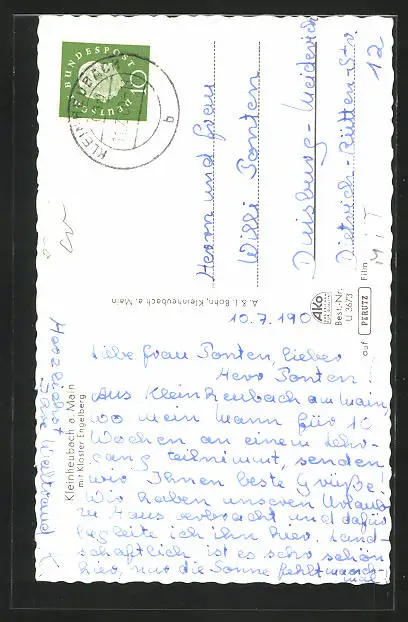 DEUTSCHE BUNDESPOST
10
KLEINHEUBACH
b
Herrn und Frau
Willi Ponten
Duisburg-Meiderich
Dietrich-Rütten-Str.
12
A. & I. Bohn, Kleinheubach a. Main
AKO
Best.-Nr.
U 3673
auf PERUTZ Film
Kleinheubach a. Main
mit Kloster Engelberg
10.7.190
Liebe Frau Ponten, lieber
Herr Ponten
Aus Kleinheubach am Main,
wo mein Mann für 10
Wochen an einem Lehr-
gang teilnimmt, senden
wir Ihnen beste Grüße.
Wir haben unseren Urlaub
zu Haus verbracht und dafür
begleite ich ihn hier. Land-
schaftlich ist es sehr schön
hier, nur die Sonne fehlt manch-
mal!
Herzlichst
Ihre Waltraud